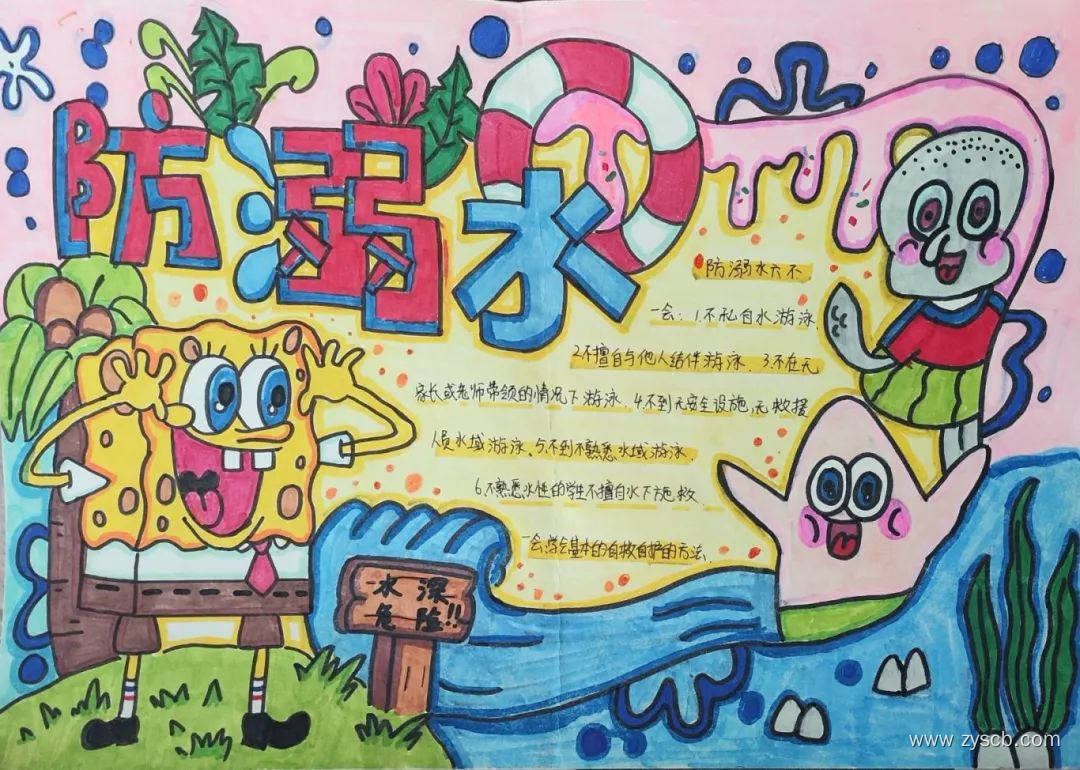 防溺水
防溺水六不
一会：1.不私自水游泳.
2不擅自与他人结伴游泳. 3.不在无
家长或老师带领的情况下游泳. 4.不到无安全设施,无救援
人员水域游泳.5.不到不熟悉水域游泳.
6.不熟悉水性的学生不擅自水下施救
一会:学会基本的自救自护的方法.
水深
危险!!
www.zyscb.com